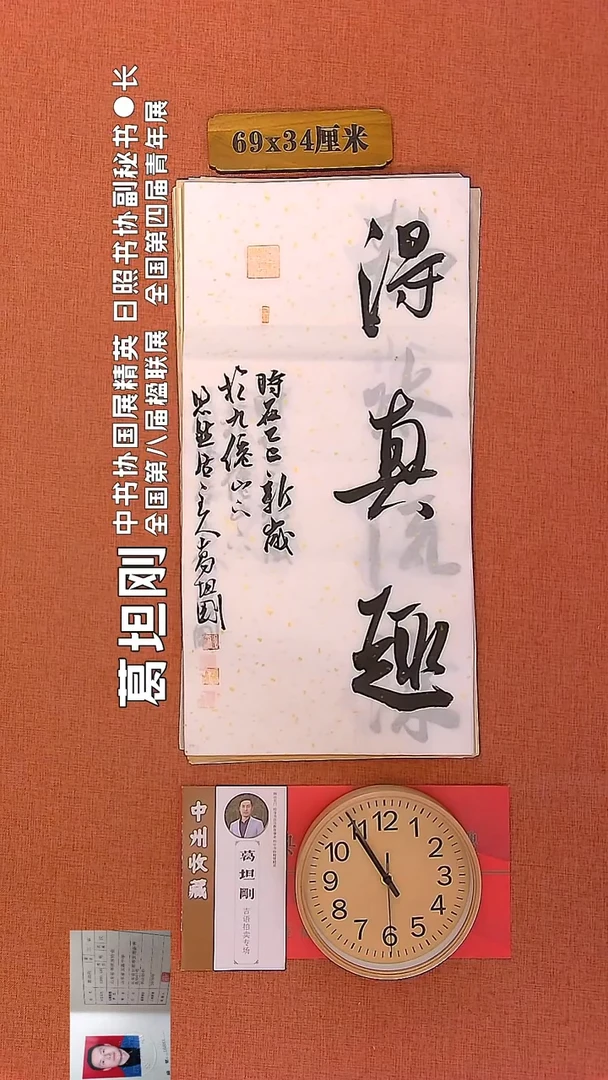 69x34厘米
得真趣
時在乙巳新歲
於九僊山下
思迷居主人葛坦剛
葛坦刚
中书协国展精英 日照书协副秘书●长
全国第八届楹联展 全国第四届青年展
中州收藏
葛坦剛
吉语拍卖专场
12
1
2
3
4
5
6
7
8
9
10
11